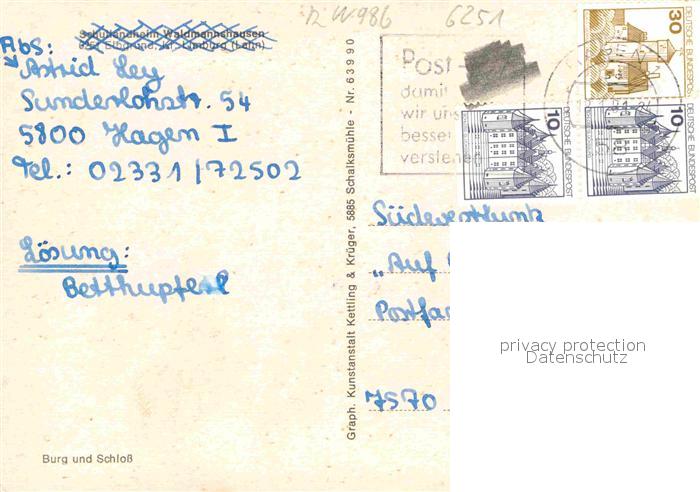 R W986 6251
Schullandheim Waldmannshausen
6251 Elbgrund, Kr. Limburg (Lahn)
Abs:
Astrid Ley
Sunderlohstr. 54
5800 Hagen I
Tel.: 02331/72502
Lösung:
Betthupferl
Burg und Schloß
Graph. Kunstanstalt Kettling & Krüger, 5885 Schalksmühle - Nr. 63990
Post
damit
wir uns
besser
verstehen
30
DEUTSCHE BUNDESPOST
10
DEUTSCHE BUNDESPOST
10
DEUTSCHE BUNDESPOST
Südwestfunk
„Auf
Postfa
7570
privacy protection
Datenschutz